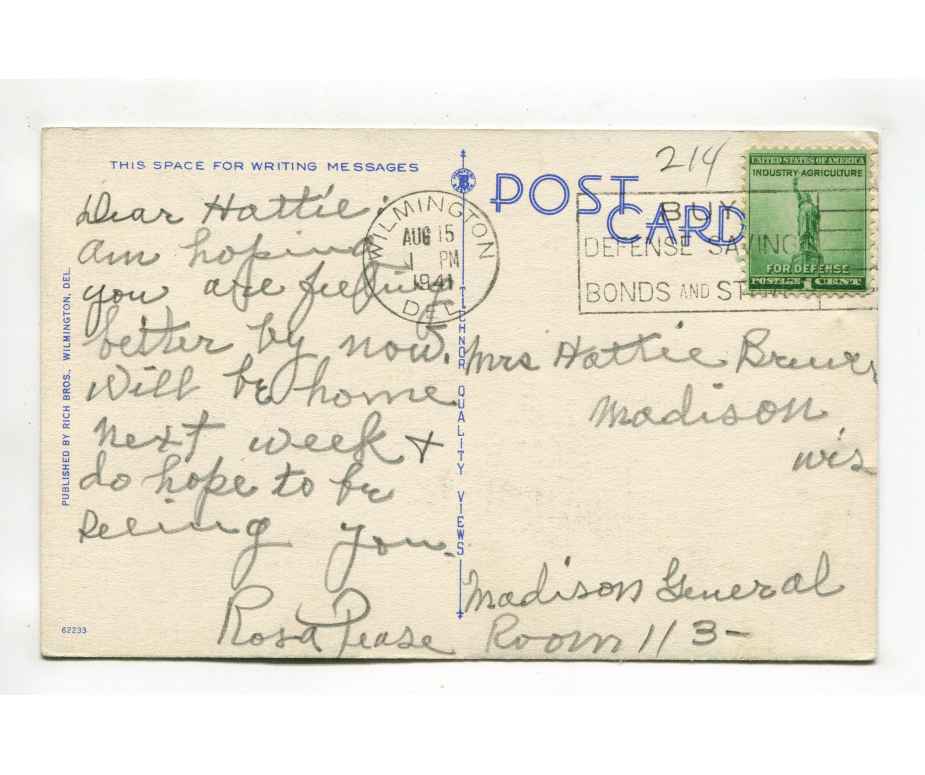 THIS SPACE FOR WRITING MESSAGES
Dear Hattie:
Am hoping
you are feeling
better by now.
Will be home
next week &
do hope to be
seeing you.
Rosa Pease
PUBLISHED BY RICH BROS., WILMINGTON, DEL.
62233
TICHNOR QUALITY VIEWS
POST CARD
214
WILMINGTON
AUG 15
1 PM
1941
DEL
BUY
DEFENSE SAVING
BONDS AND
UNITED STATES OF AMERICA
INDUSTRY AGRICULTURE
FOR DEFENSE
POSTAGE 1 CENT
Mrs Hattie
Madison
Wis
Madison General
Room 113-